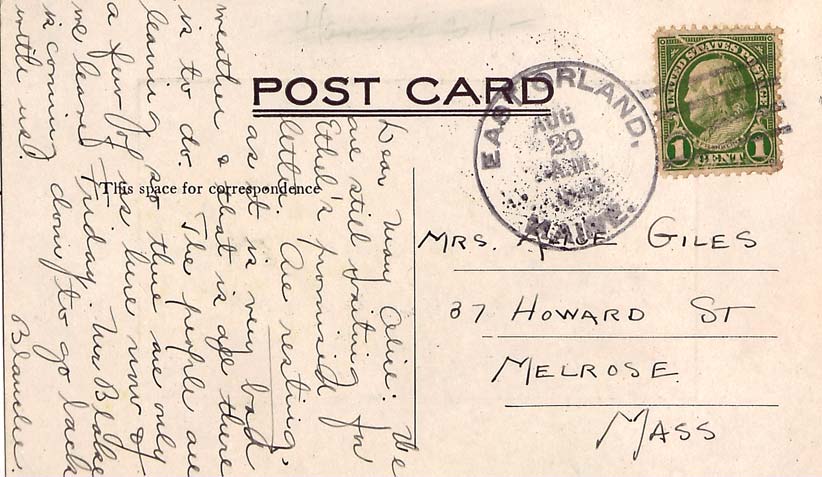 POST CARD
This space for correspondence
UNITED STATES POSTAGE
1 CENT 1
EAST ORLAND,
AUG
29
MAINE.
MRS. ALICE GILES
37 HOWARD ST
MELROSE
MASS
Dear Mary Alice: We
are still waiting for
Ethel's promised
letter. Are resting,
as it is very bad
weather & that is all there
is to do. The people are
leaving so there are only
a few of us here now &
we leave Friday. Mr Blake
is coming down to go back
with us.
Blanche.